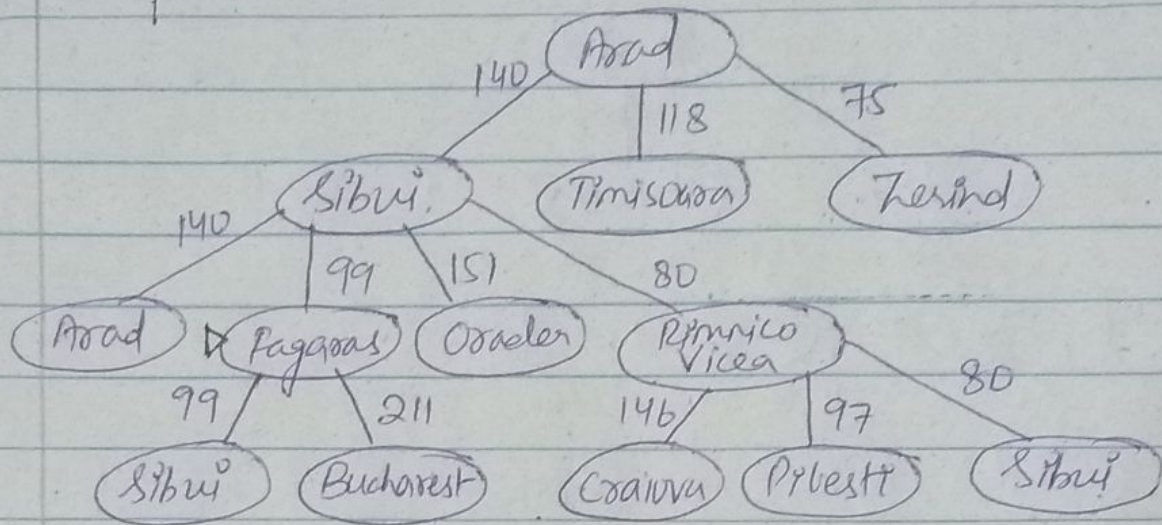 Arad
140 118 75
Sibui Timisoara Zerind
140 99 151 80
Arad Fagaras Oradea Rimnico
Vicea
99 211 146 97 80
Sibui Bucharest Craiova Pitesti Sibui